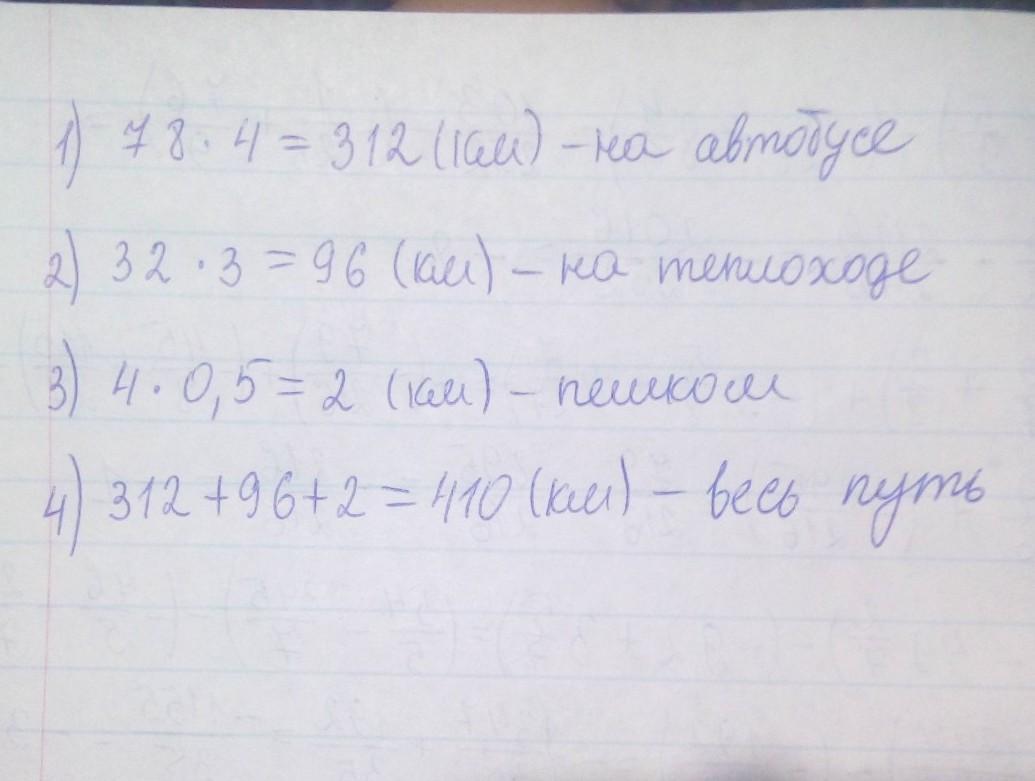 1) 78 · 4 = 312 (км) – на автобусе
2) 32 · 3 = 96 (км) – на теплоходе
3) 4 · 0,5 = 2 (км) – пешком
4) 312 + 96 + 2 = 410 (км) – весь путь